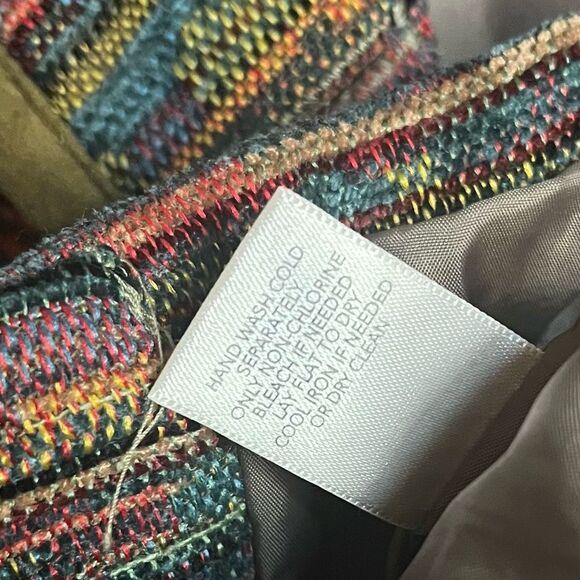 HAND WASH COLD
SEPARATELY
ONLY NON-CHLORINE
BLEACH IF NEEDED
LAY FLAT TO DRY
COOL IRON IF NEEDED
OR DRY CLEAN